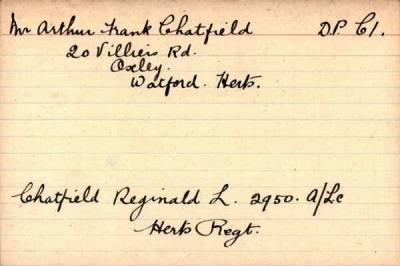 Mr Arthur Frank Chatfield D.P. C/.
20 Villiers Rd.
Oxley.
Watford. Herts.
Chatfield Reginald L. 2950. A/Lc
Herts Regt.